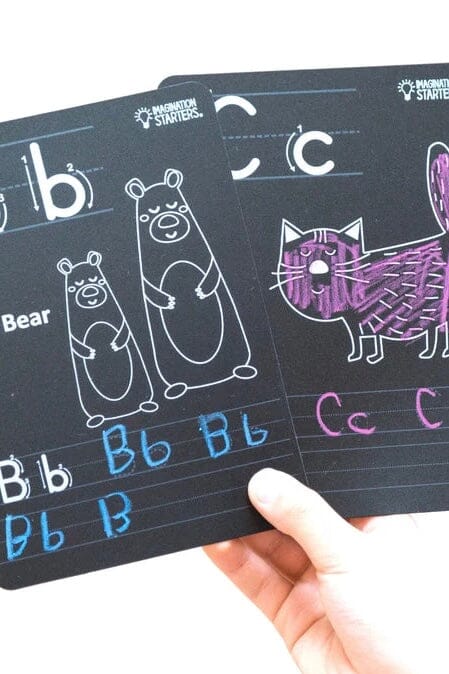 IMAGINATION
STARTERS
b
Bear
Bb Bb Bb
Bb B
IMAGINATION
STARTERS
C c
Cc C